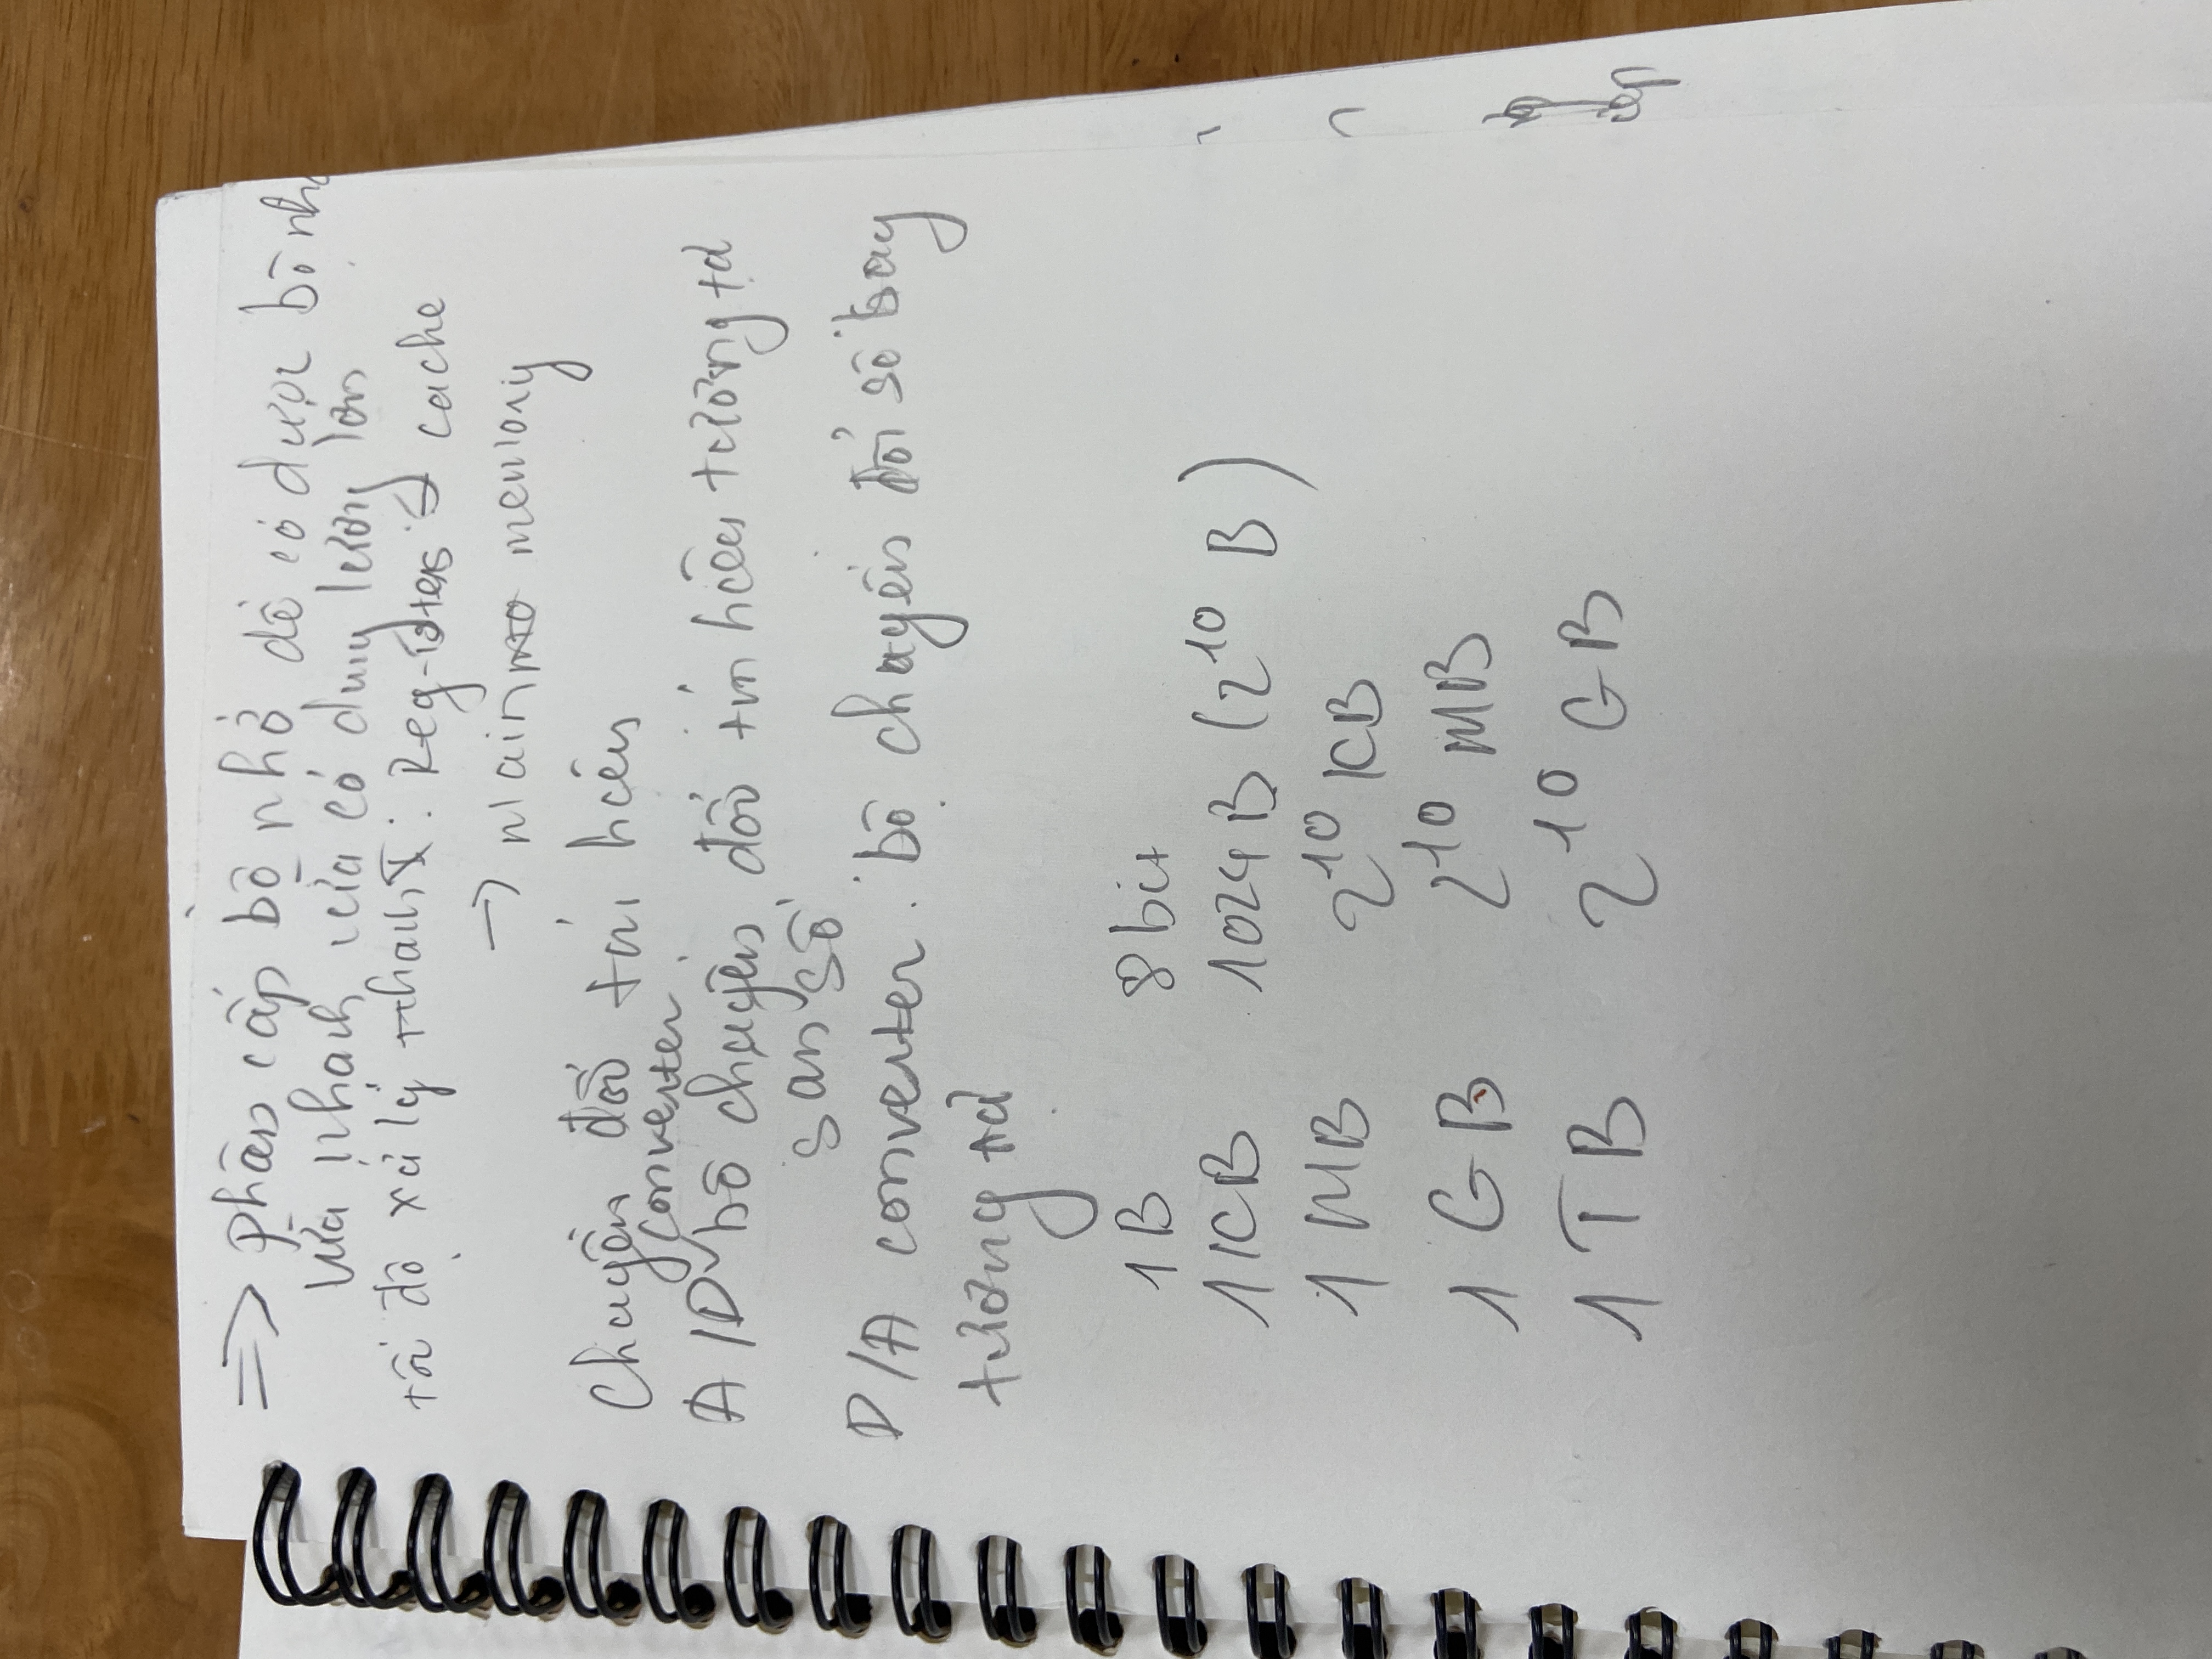 => phân cấp bộ nhớ để có được bộ nhớ
vừa nhanh vừa có dung lượng lớn
tôi độ xử lý nhanh: Registers -> cache
-> main memory
Chuyển đổi tín hiệu
A/D converter bộ chuyển đổi tín hiệu tương tự
sang số
D/A converter: bộ chuyển đổi số sang
tương tự
1B 8 bit
1KB 1024B (2^10 B)
1MB 2^10 KB
1GB 2^10 MB
1TB 2^10 GB